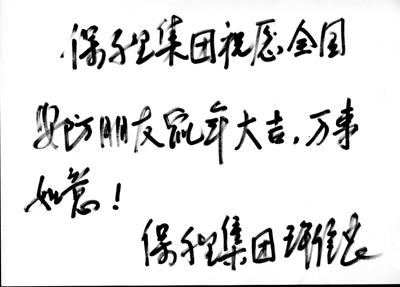 保千里集团祝愿全国
安防朋友鼠年大吉,万事
如意!
保千里集团